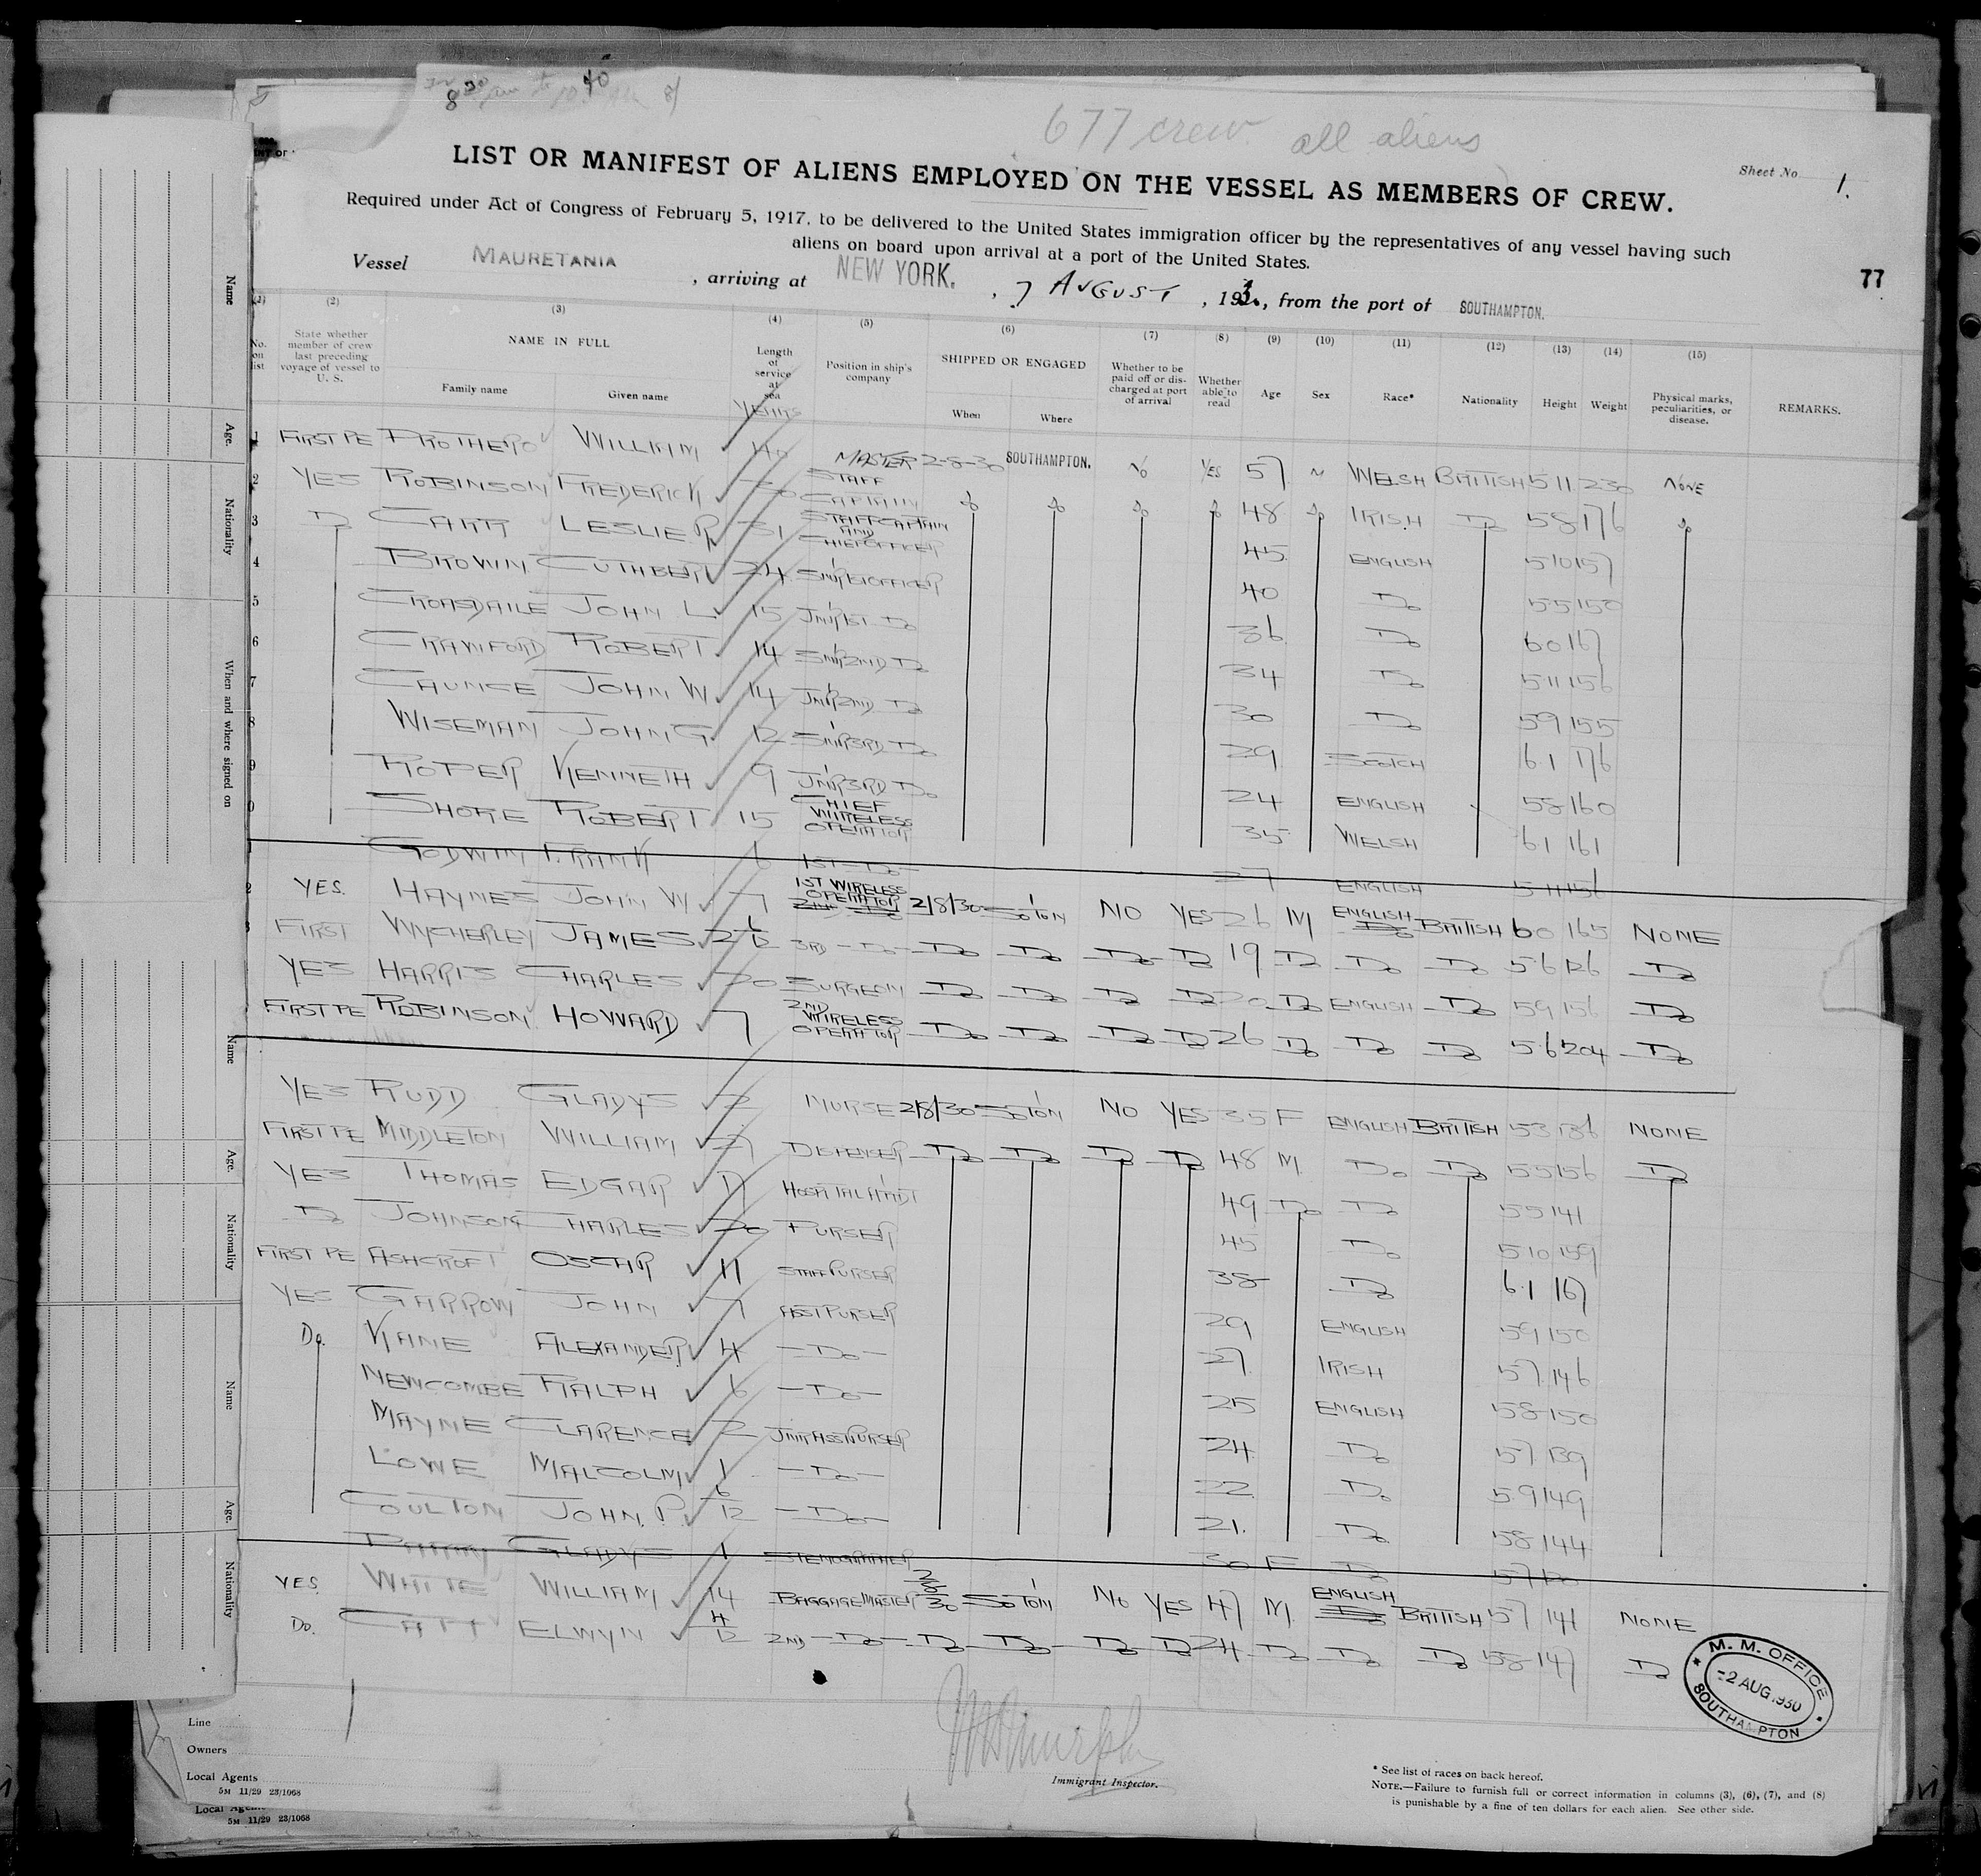 677 crew all aliens
LIST OR MANIFEST OF ALIENS EMPLOYED ON THE VESSEL AS MEMBERS OF CREW.
Sheet No 1.
Required under Act of Congress of February 5, 1917, to be delivered to the United States immigration officer by the representatives of any vessel having such
aliens on board upon arrival at a port of the United States.
Vessel MAURETANIA , arriving at NEW YORK. , 7 AUGUST , 193 , from the port of SOUTHAMPTON.
77
(1) (2) (3) (4) (5) (6) (7) (8) (9) (10) (11) (12) (13) (14) (15)
No. on list
State whether member of crew last preceding voyage of vessel to U. S.
NAME IN FULL
Family name Given name
Length of service at sea
YEARS
Position in ship's company
SHIPPED OR ENGAGED
When Where
Whether to be paid off or discharged at port of arrival
Whether able to read
Age Sex Race* Nationality Height Weight
Physical marks, peculiarities, or disease.
REMARKS.
1 FIRST PE PROTHERO WILLIAM 40 MASTER 2-8-30 SOUTHAMPTON. NO YES 57 M WELSH BRITISH 5 11 230 NONE
2 YES ROBINSON FREDERICK 30 STAFF CAPTAIN Do Do Do Do 48 Do IRISH Do 58 176 Do
3 Do CARR LESLIE R 31 STAFF CAPTAIN AND CHIEF OFFICER 45 ENGLISH 510 157
4 BROWN CUTHBERT 24 SNR 1ST OFFICER 40 Do 55 150
5 CROASDAILE JOHN L. 15 JNR 1ST Do 36 Do 60 167
6 CRAWFORD ROBERT 14 SNR 2ND Do 34 Do 511 156
7 CAUNCE JOHN W 14 JNR 2ND Do 30 Do 59 155
8 WISEMAN JOHN G. 12 SNR 3RD Do 29 SCOTCH 6.1 176
9 ROPER KENNETH 9 JNR 3RD Do 24 ENGLISH 58 160
SHORE ROBERT 15 CHIEF WIRELESS OPERATOR 35 WELSH 6.1 161
GODWIN FRANK 6 1ST Do 27 ENGLISH 5 11 156
YES. HAYNES JOHN W 7 1ST WIRELESS OPERATOR 2/8/30 SO'TON NO YES 26 M ENGLISH BRITISH 60 165 NONE
FIRST WYCHERLEY JAMES 6/12 3RD Do Do Do Do Do 19 Do Do Do 56 126 Do
YES HARRIS CHARLES SURGEON Do Do Do Do Do ENGLISH Do 59 156 Do
FIRST PE ROBINSON HOWARD 7 2ND WIRELESS OPERATOR Do Do Do Do 26 Do Do Do 56 204 Do
YES RUDD GLADYS 2 NURSE 2/8/30 SO'TON NO YES 35 F ENGLISH BRITISH 53 136 NONE
FIRST PE MIDDLETON WILLIAM DISPENSER Do Do Do Do 48 M. Do Do 55 156 Do
YES THOMAS EDGAR HOSPITAL ATTDT 49 Do Do 55 141
Do JOHNSON CHARLES 20 PURSER 45 Do 510 159
FIRST PE ASHCROFT OSCAR 11 STAFF PURSER 38 Do 6.1 167
YES GARROW JOHN 7 ASST PURSER 29 ENGLISH 59 150
Do. KANE ALEXANDER 4 Do 27. IRISH 57. 146
NEWCOMBE RALPH 6 Do 25 ENGLISH 58 150
MAYNE CLARENCE 2 JNR ASS PURSER 24 Do 57 139
LOWE MALCOLM 1 Do 22 Do 59 149
COULTON JOHN. P. 6/12 Do 21. Do 58 144
GLADYS 1 STENOGRAPHER 30 F Do
YES. WHITE WILLIAM 14 BAGGAGE MASTER 2/8/30 SO'TON NO YES 47 M. ENGLISH BRITISH 57 141 NONE
Do. CATT ELWYN 4/12 2ND Do Do Do Do Do 24 Do Do Do 58 147 Do
M. M. OFFICE
2 AUG 1930
SOUTHAMPTON
Immigrant Inspector.
* See list of races on back hereof.
NOTE.—Failure to furnish full or correct information in columns (3), (6), (7), and (8)
is punishable by a fine of ten dollars for each alien. See other side.
Line
Owners
Local Agents
5M 11/29 23/1068
Local Agents
5M 11/29 23/1068
Name
Age.
Nationality
When and where signed on
Name
Age.
Nationality
Name
Age.
Nationality